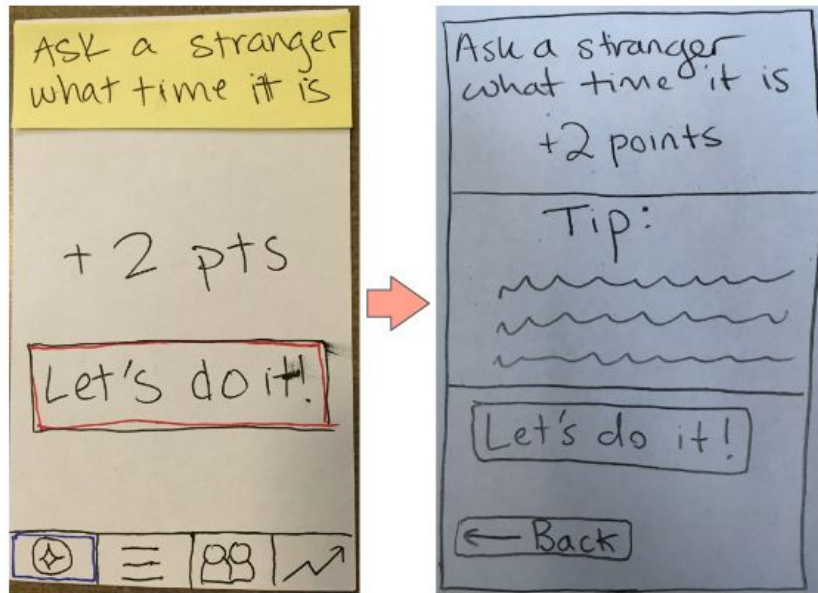 Ask a stranger
what time it is
+ 2 pts
Let's do it!
Ask a stranger
what time it is
+2 points
Tip:
Let's do it!
← Back